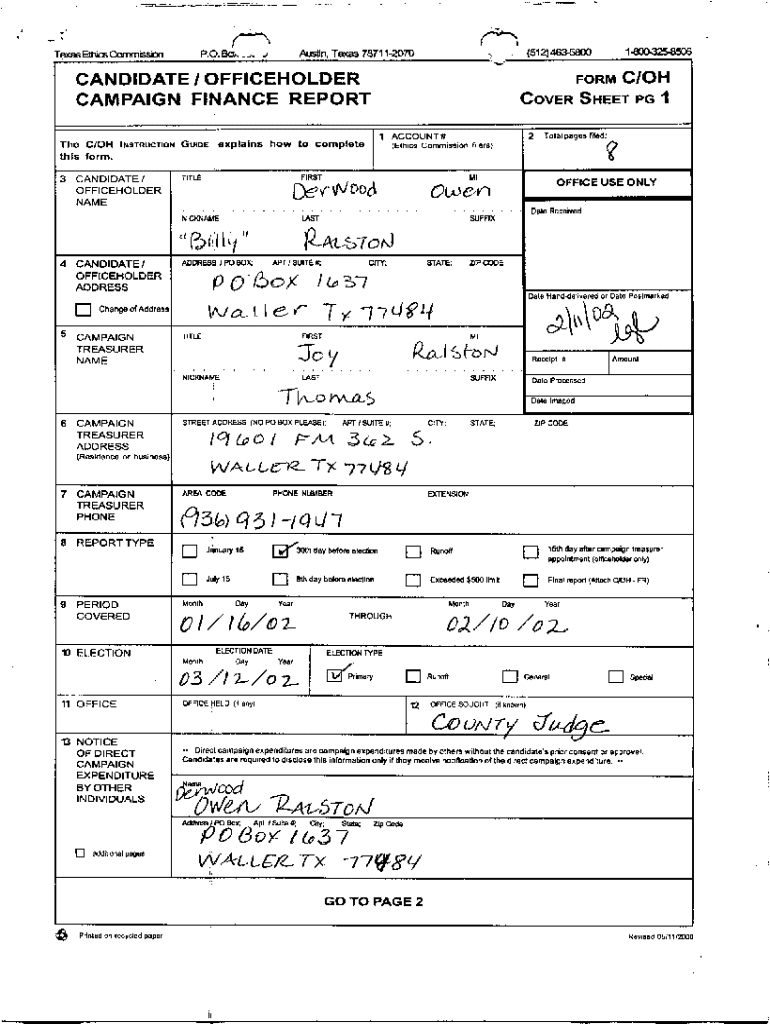 Texas Ethics Commission P.O. Box Austin, Texas 78711-2070 (512) 463-5800 1-800-325-8506
CANDIDATE / OFFICEHOLDER
CAMPAIGN FINANCE REPORT
FORM C/OH
COVER SHEET PG 1
The C/OH INSTRUCTION GUIDE explains how to complete
this form.
1 ACCOUNT #
(Ethics Commission filers)
2 Total pages filed:
8
3 CANDIDATE /
OFFICEHOLDER
NAME
TITLE FIRST MI
DerWood Owen
NICKNAME LAST SUFFIX
"Billy" RALSTON
OFFICE USE ONLY
Date Received
4 CANDIDATE /
OFFICEHOLDER
ADDRESS
Change of Address
ADDRESS / PO BOX; APT / SUITE #; CITY; STATE; ZIP CODE
PO Box 1637
Waller Tx 77484
Date Hand-delivered or Date Postmarked
2/11/02
5 CAMPAIGN
TREASURER
NAME
TITLE FIRST MI
Joy Ralston
NICKNAME LAST SUFFIX
Thomas
Receipt # Amount
Date Processed
Date Imaged
6 CAMPAIGN
TREASURER
ADDRESS
(Residence or business)
STREET ADDRESS (NO PO BOX PLEASE); APT / SUITE #; CITY; STATE; ZIP CODE
19601 FM 362 S.
WALLER TX 77484
7 CAMPAIGN
TREASURER
PHONE
AREA CODE PHONE NUMBER EXTENSION
(936) 931-1947
8 REPORT TYPE
January 15 30th day before election Runoff 15th day after campaign treasurer
appointment (officeholder only)
July 15 8th day before election Exceeded $500 limit Final report (Attach C/OH - FR)
9 PERIOD
COVERED
Month Day Year Month Day Year
01/16/02 THROUGH 02/10/02
10 ELECTION
ELECTION DATE
Month Day Year
03/12/02
ELECTION TYPE
Primary Runoff General Special
11 OFFICE
OFFICE HELD (if any)
12 OFFICE SOUGHT (if known)
COUNTY Judge
13 NOTICE
OF DIRECT
CAMPAIGN
EXPENDITURE
BY OTHER
INDIVIDUALS
Additional pages
•• Direct campaign expenditures are campaign expenditures made by others without the candidate's prior consent or approval.
Candidates are required to disclose this information only if they receive notification of the direct campaign expenditure. ••
Name
Derwood
Owen RALSTON
Address / PO Box; Apt / Suite #; City; State; Zip Code
PO Box 1637
WALLER TX 77484
GO TO PAGE 2
Printed on recycled paper
Revised 05/11/2000